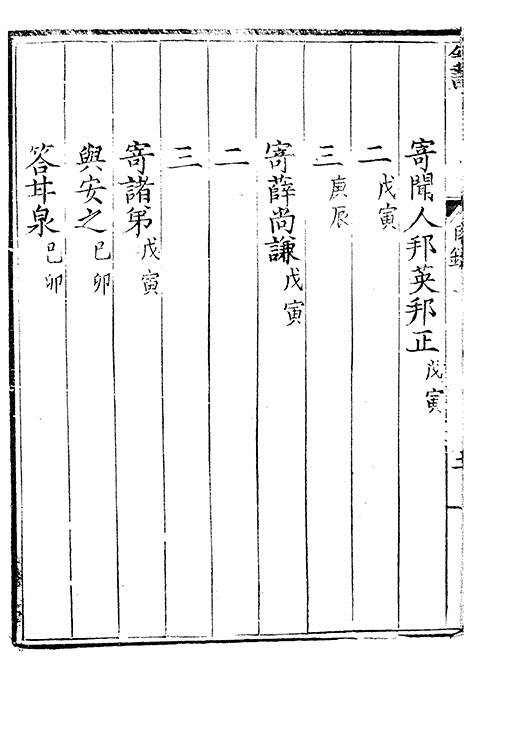 寄聞人邦英邦正 戊寅
二 戊寅
三 庚辰
寄薛尚謙 戊寅
二
三
寄諸弟 戊寅
與安之 己卯
答甘泉 己卯